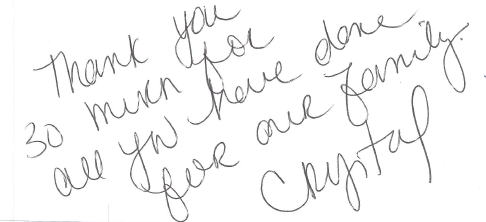 Thank you
so much for
all you have done
for our family.
Crystal